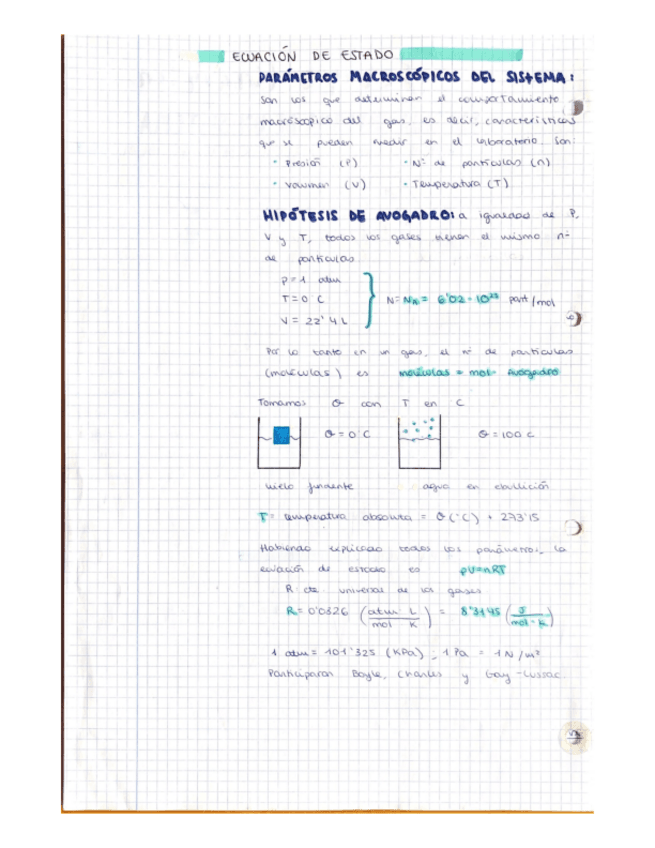 ECUACIÓN DE ESTADO
PARÁMETROS MACROSCÓPICOS DEL SISTEMA:
Son los que determinan el comportamiento
macroscópico del gas, es decir, características
que se pueden medir en el laboratorio. Son:
· Presión (P) · Nº de partículas (n)
· Volumen (V) · Temperatura (T)
HIPÓTESIS DE AVOGADRO: a igualdad de P,
V y T, todos los gases tienen el mismo nº
de partículas
P = 1 atm
T = 0 ˚C
V = 22'4 L
N = NA = 6'02 · 10²³ part/mol
Por lo tanto en un gas, el nº de partículas
(moléculas) es moléculas = mol · Avogadro
Tomamos θ con T en ˚C
θ = 0˚C θ = 100 ˚C
hielo fundente agua en ebullición
T = temperatura absoluta = θ (˚C) + 273'15
Habiendo explicado todos los parámetros, la
ecuación de estado es PV = nRT
R: cte universal de los gases
R = 0'0826 (atm · L / mol · K) = 8'3145 (J / mol · K)
1 atm = 101'325 (KPa) ; 1 Pa = 1 N/m²
Participaron Boyle, Charles y Gay-Lussac